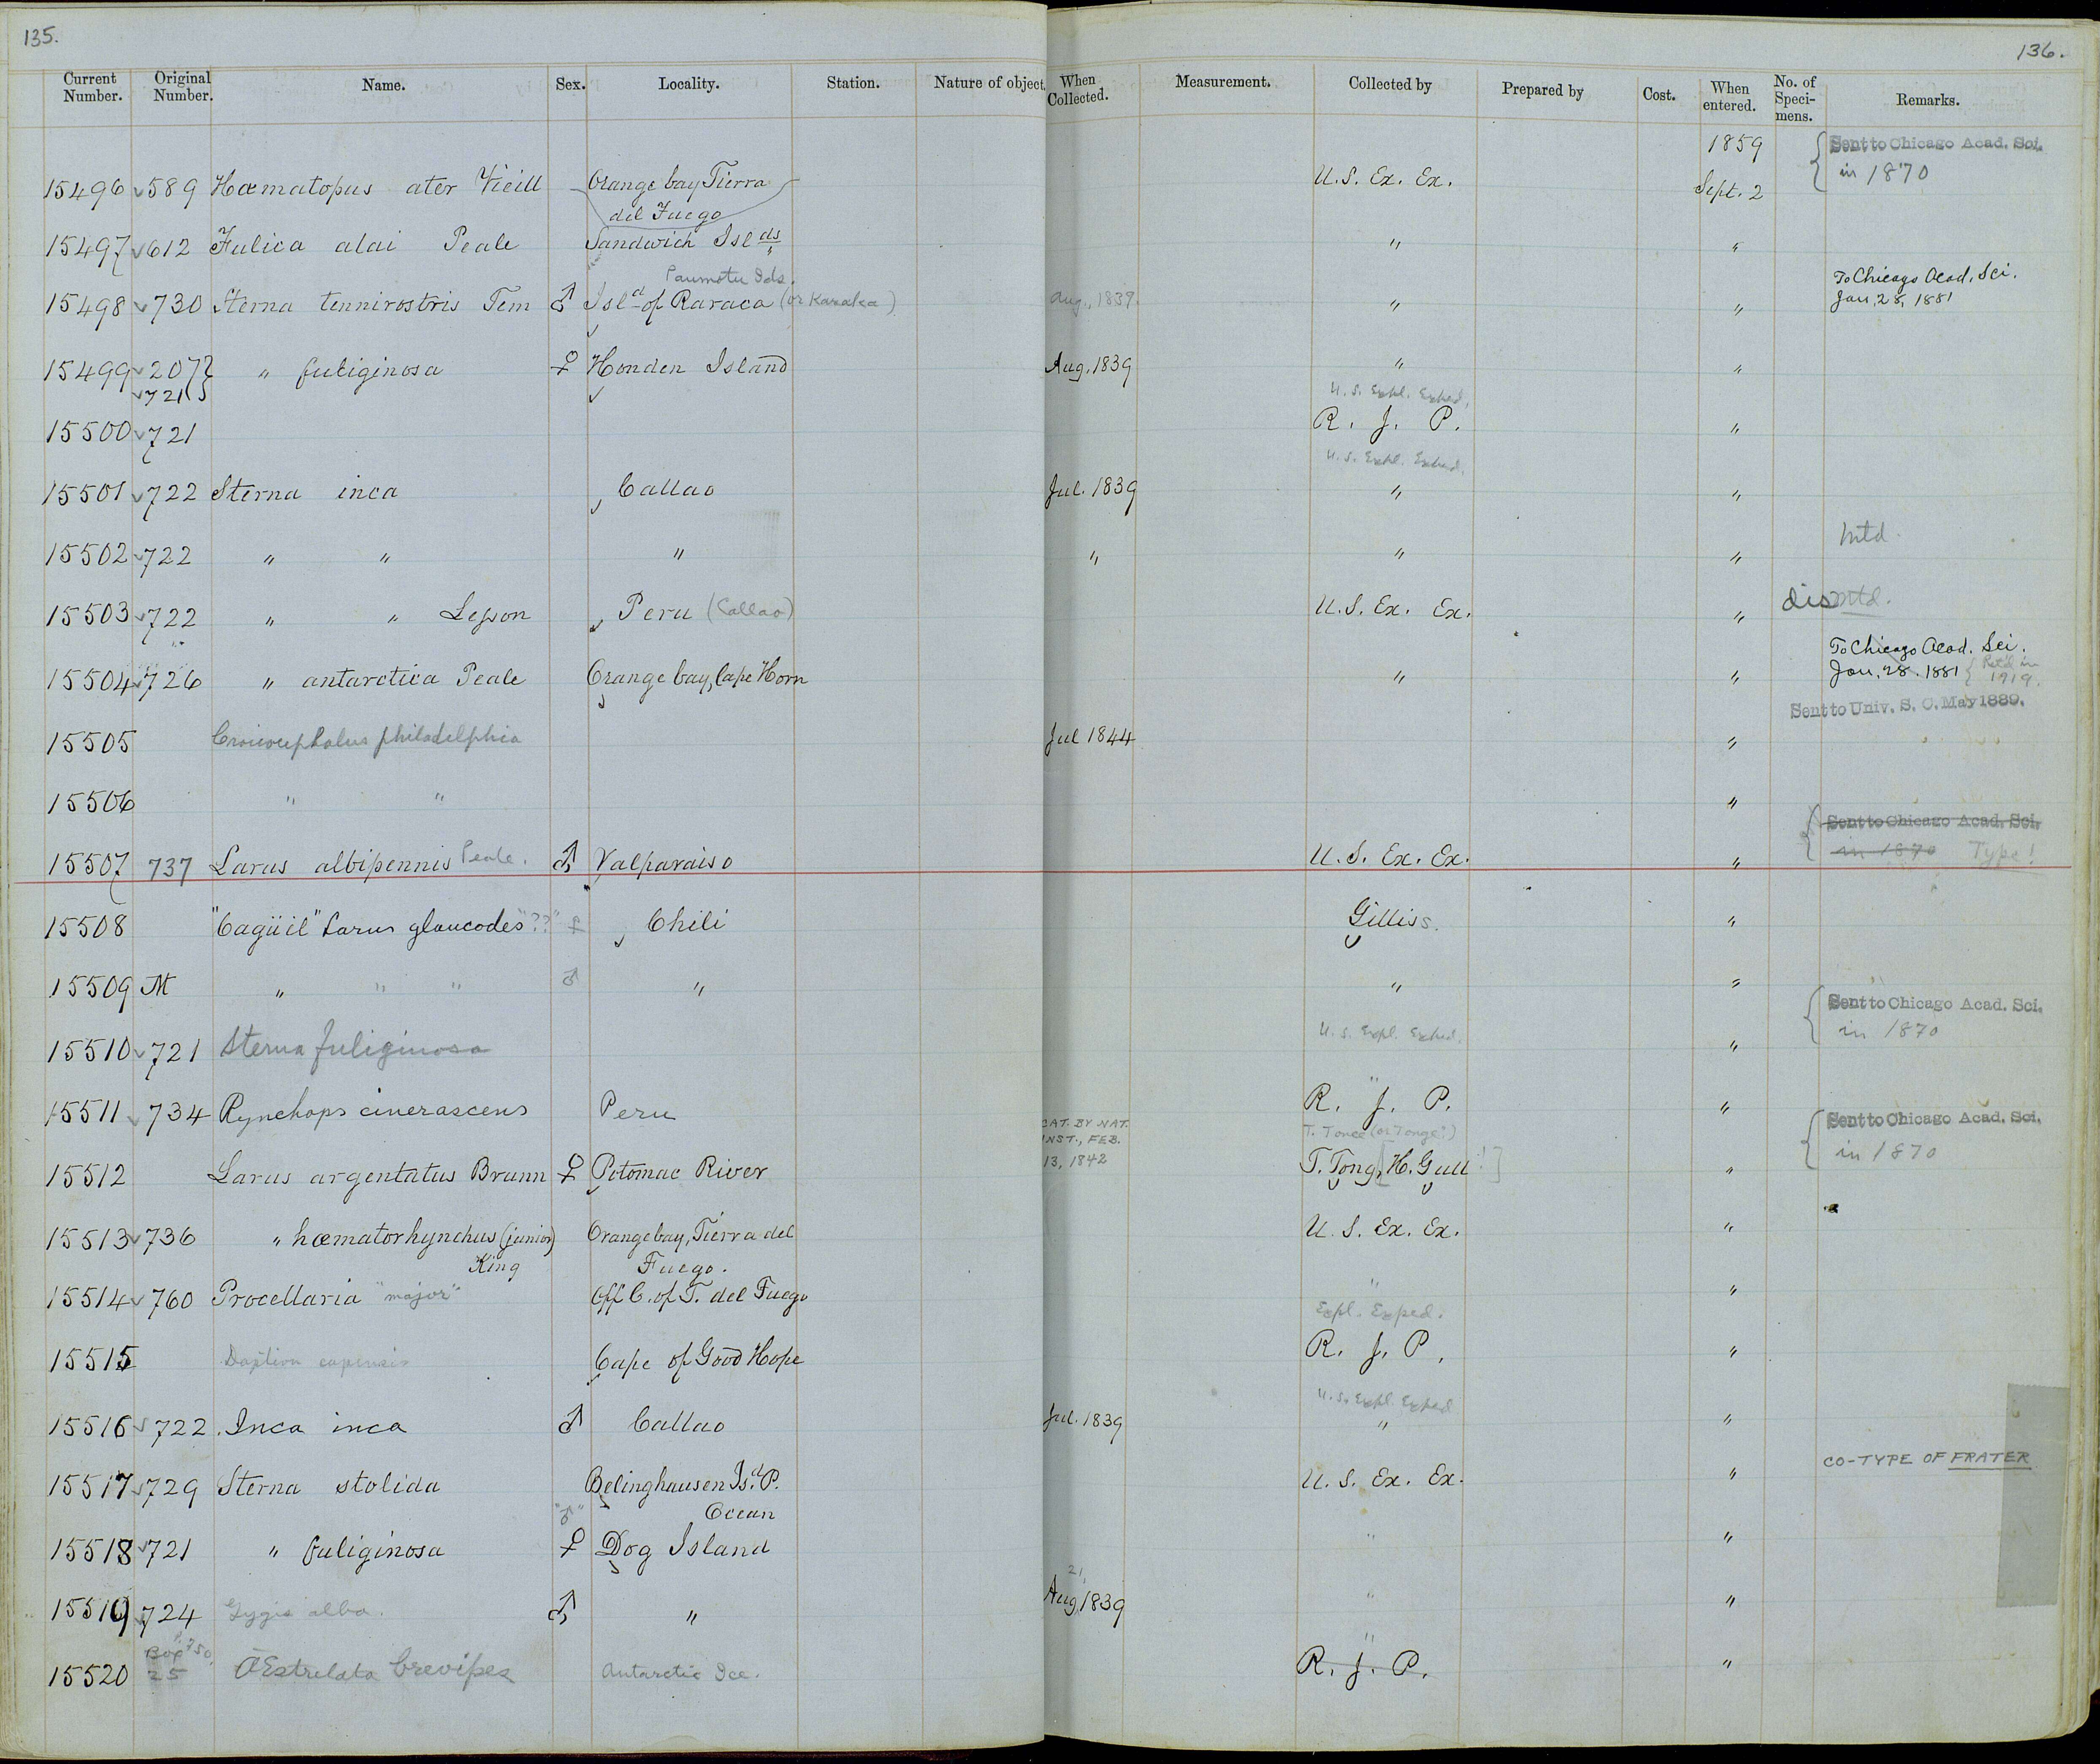 135.
136.
Current Number. Original Number. Name. Sex. Locality. Station. Nature of object. When Collected. Measurement. Collected by Prepared by Cost. When entered. No. of Specimens. Remarks.
1859 Sent to Chicago Acad. Sci.
15496 589 Hæmatopus ater Vieill Orange bay Tierra U.S. Ex. Ex. Sept. 2 in 1870
del Fuego
15497 612 Fulica alai Peale Sandwich Islds " "
Paumotu Ids. To Chicago Acad. Sci.
15498 730 Sterna tennirostris Tem ♂ Isld of Raraca (or Karaka) Aug., 1839. " " Jan. 28, 1881
15499 207 " fuliginosa ♀ Honden Island Aug, 1839 " "
721 U.S. Expl. Exped.
15500 721 R. J. P. "
U.S. Expl. Exped.
15501 722 Sterna inca Callao Jul. 1839 " "
15502 722 " " " " " " Mtd.
15503 722 " " Lesson Peru (Callao) U.S. Ex. Ex. " dismtd.
To Chicago Acad. Sci.
15504 726 " antarctica Peale Orange bay, Cape Horn " " Jan. 28. 1881 { Ret'd in 1919.
Sent to Univ. S. C. May 1889.
15505 Croicocephalus philadelphia Jul 1844 "
15506 " " "
Sent to Chicago Acad. Sci.
15507 737 Larus albipennis Peale. ♂ Valparaiso U.S. Ex. Ex. " in 1870 Type!
15508 "Cagüil" Larus glaucodes "??" ♀ Chili Gilliss. "
15509 M " " " ♂ " " "
Sent to Chicago Acad. Sci.
U.S. Expl. Exped. in 1870
15510 721 Sterna fuliginosa "
"
15511 734 Rynchops cinerascens Peru R. J. P. "
CAT. BY NAT. INST., FEB. 13, 1842 T. Tonce (or Tonge?) Sent to Chicago Acad. Sci.
15512 Larus argentatus Brunn ♀ Potomac River T. Tong, [H. Gull!] " in 1870
15513 736 " hæmatorhynchus (junior) Orange bay, Tierra del U.S. Ex. Ex. "
King Fuego.
15514 760 Procellaria "major" Off C. of T. del Fuego " "
Expl. Exped.
15515 Daption capensis Cape of Good Hope R. J. P. "
U.S. Expl. Exped
15516 722 Inca inca ♂ Callao Jul. 1839 " "
15517 729 Sterna stolida Belinghausen Isd. P. U.S. Ex. Ex. " CO-TYPE OF FRATER
"♂" Ocean
15518 721 " fuliginosa ♀ Dog Island " "
21,
15519 724 Gygis alba. ♂ " Aug, 1839 " "
Box "
15520 25 Æstrelata brevipes Antarctic Ice. R. J. P. "